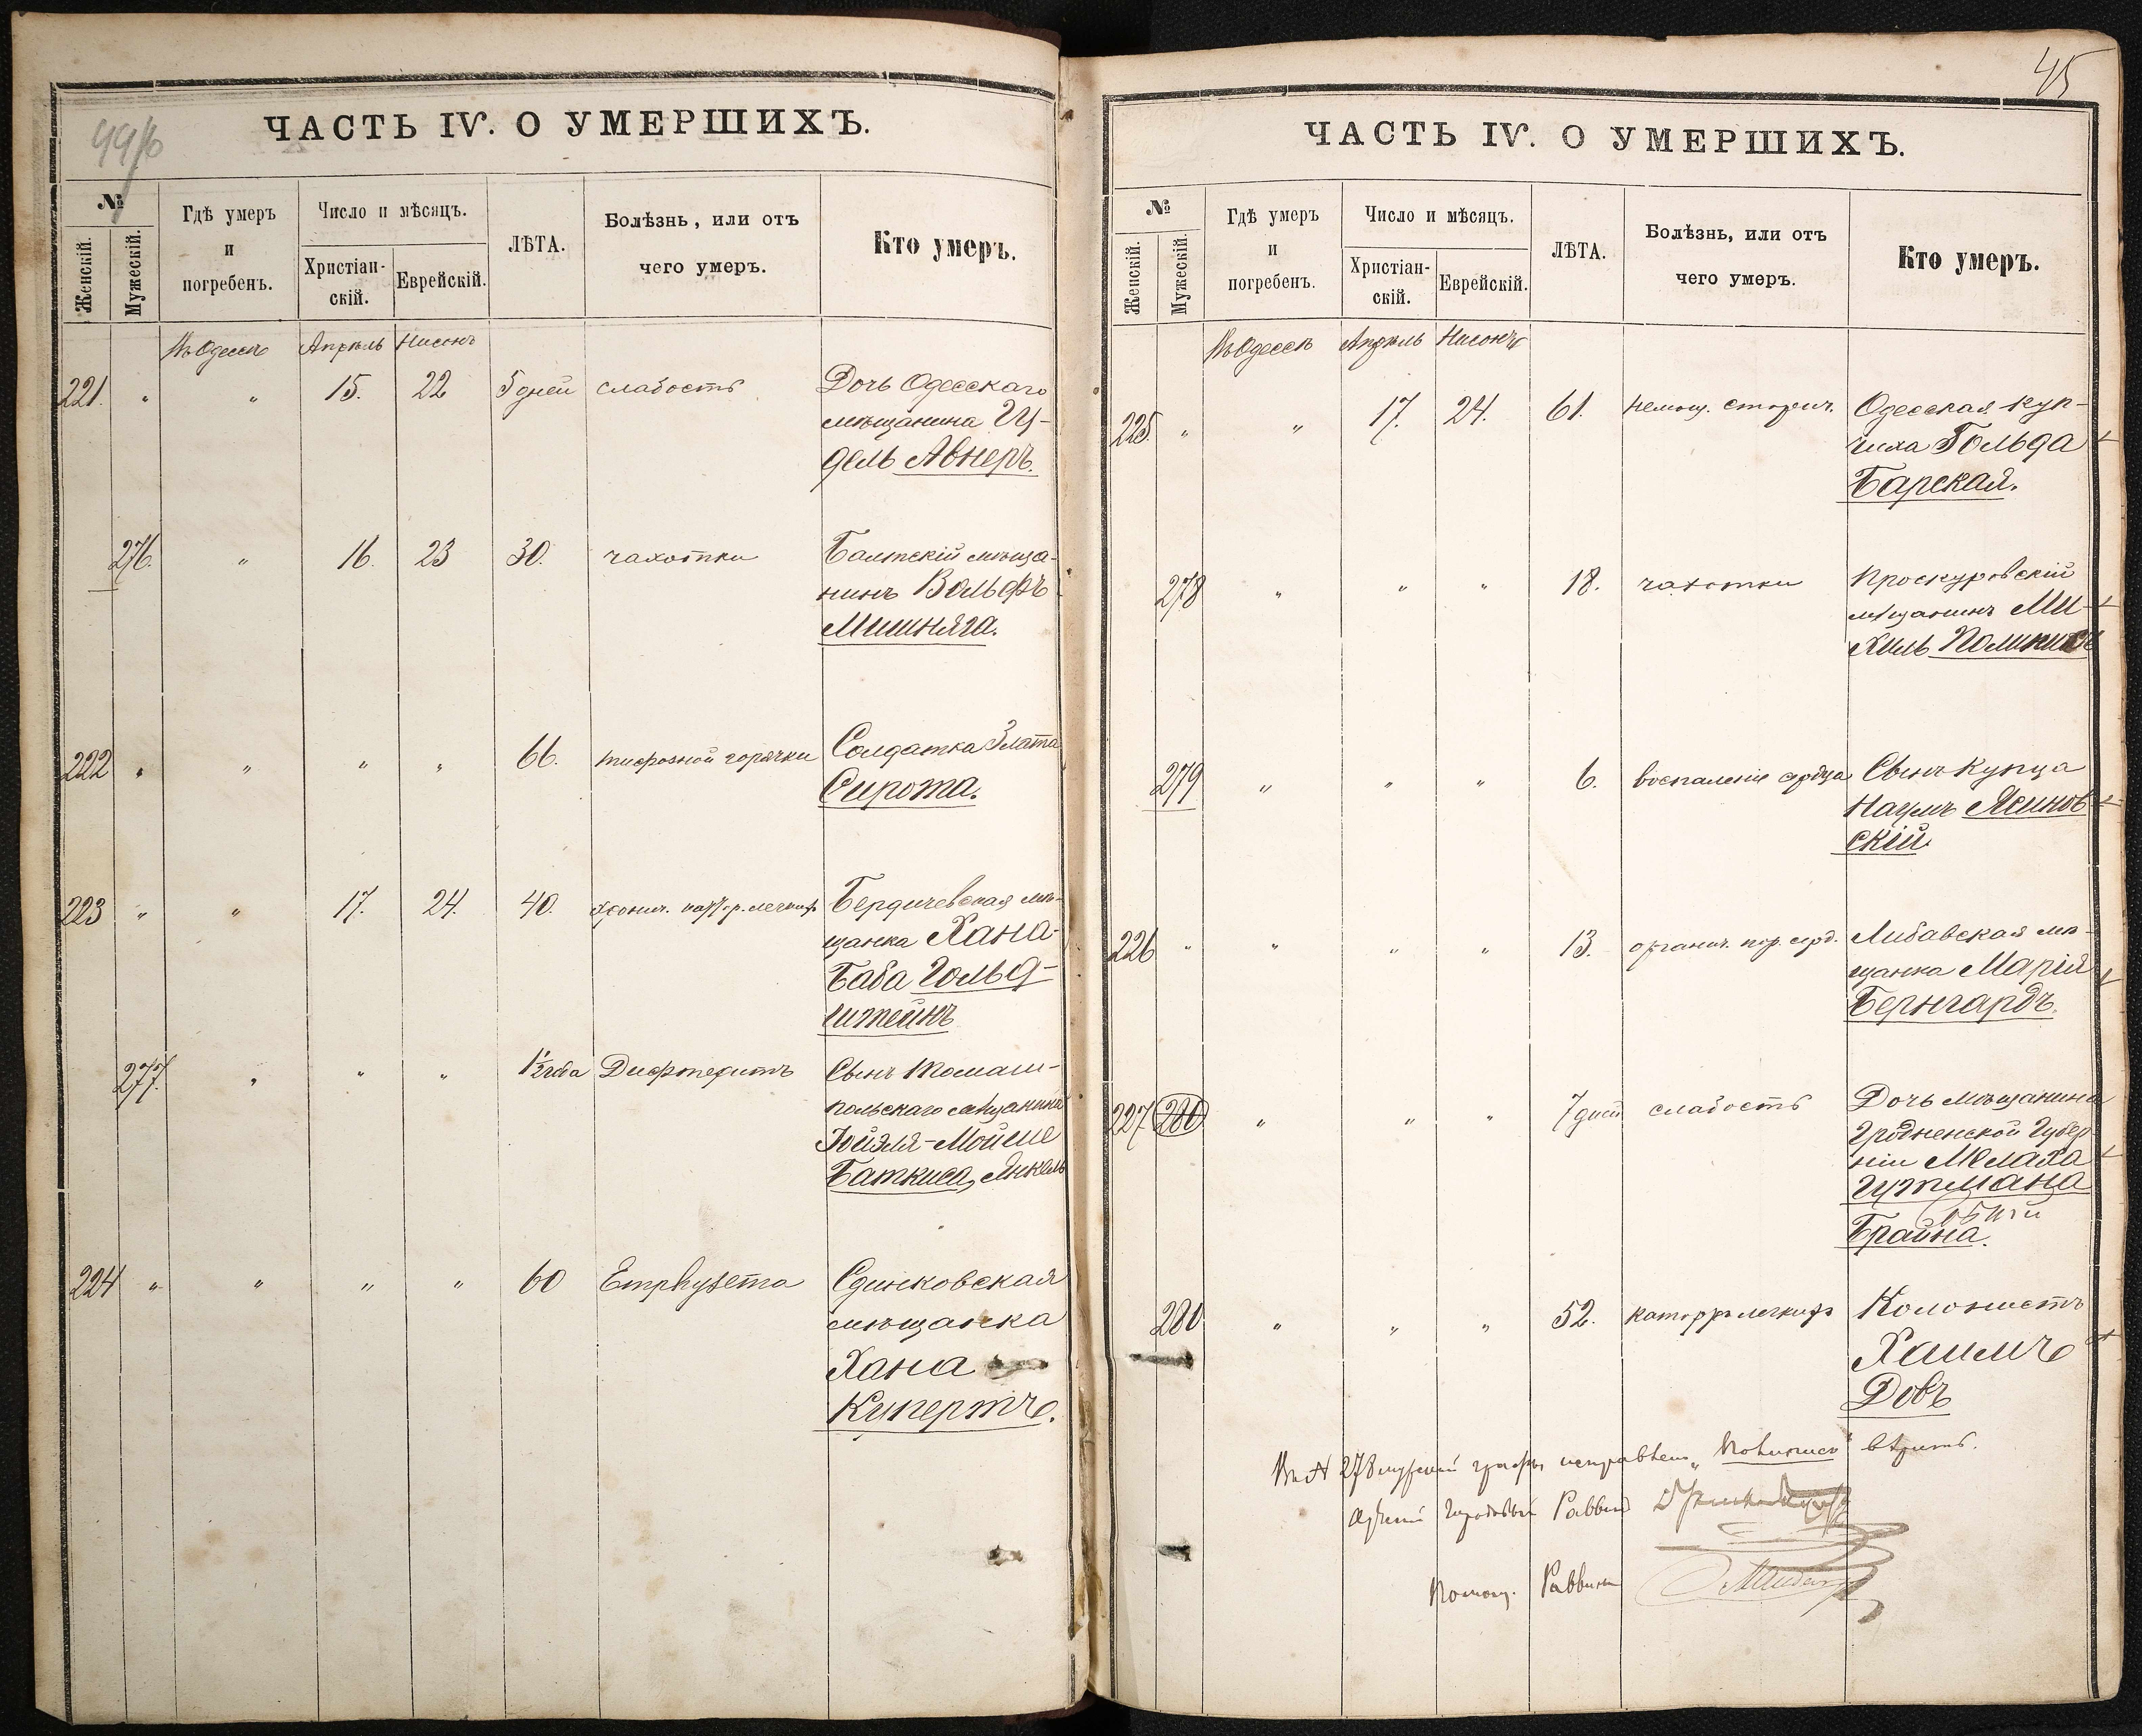 ЧАСТЬ IV. О УМЕРШИХЪ.
№
Женскій.
Мужескій.
Гдѣ умеръ
и
погребенъ.
Число и мѣсяцъ.
Христіан-
скій.
Еврейскій.
ЛѢТА.
Болѣзнь, или отъ
чего умеръ.
Кто умеръ.
Въ Одессѣ Апрѣль Нисонъ
221. " " 15. 22 5 дней слабость Дочь Одесскаго
мѣщанина
дель Авнеръ.
276. " 16. 23 30. чахотки Балтскій мѣща-
нинъ Вольфъ
Мишняга.
222 " " " " 66. тифозной горячки Солдатка Злата
Сирота.
223 " " 17. 24. 40. хронич. легкихъ Бердичевская мѣ-
щанка Хана-
Баба Гольд-
штейнъ
277. " " " 1½ года Дифтеритъ Сынъ Томаш-
польскаго мѣщанина
Мойше
Баткиса, Янкель
224 " " " " 60 Emphysema
мѣщанка
Хана
Купертъ.
45
ЧАСТЬ IV. О УМЕРШИХЪ.
№
Женскій.
Мужескій.
Гдѣ умеръ
и
погребенъ.
Число и мѣсяцъ.
Христіан-
скій.
Еврейскій.
ЛѢТА.
Болѣзнь, или отъ
чего умеръ.
Кто умеръ.
Въ Одессѣ Апрѣль Нисонъ
225. " " 17. 24. 61. немощ. старич. Одесская куп-
чиха Гольда
Барская.
278 " " " 18. чахотки Проскуровскій
мѣщанинъ Ми-
хиль
279 " " " 6. воспаленіе сердца Сынъ купца
Наумъ Ясинов-
скій
226 " " " " 13. органич. пор. серд. Либавская мѣ-
щанка Марія
Бернгардъ.
227 280 " " " 7 дней слабость Дочь мѣщанина
Гродненской Губер-
ніи
Гутмана
Брайна.
280 " " " 52. катарръ легкихъ Колонистъ
Хаимъ
Довъ
Въ № 278 графы вѣрить.
Городовый Раввинъ
Помощ. Раввина